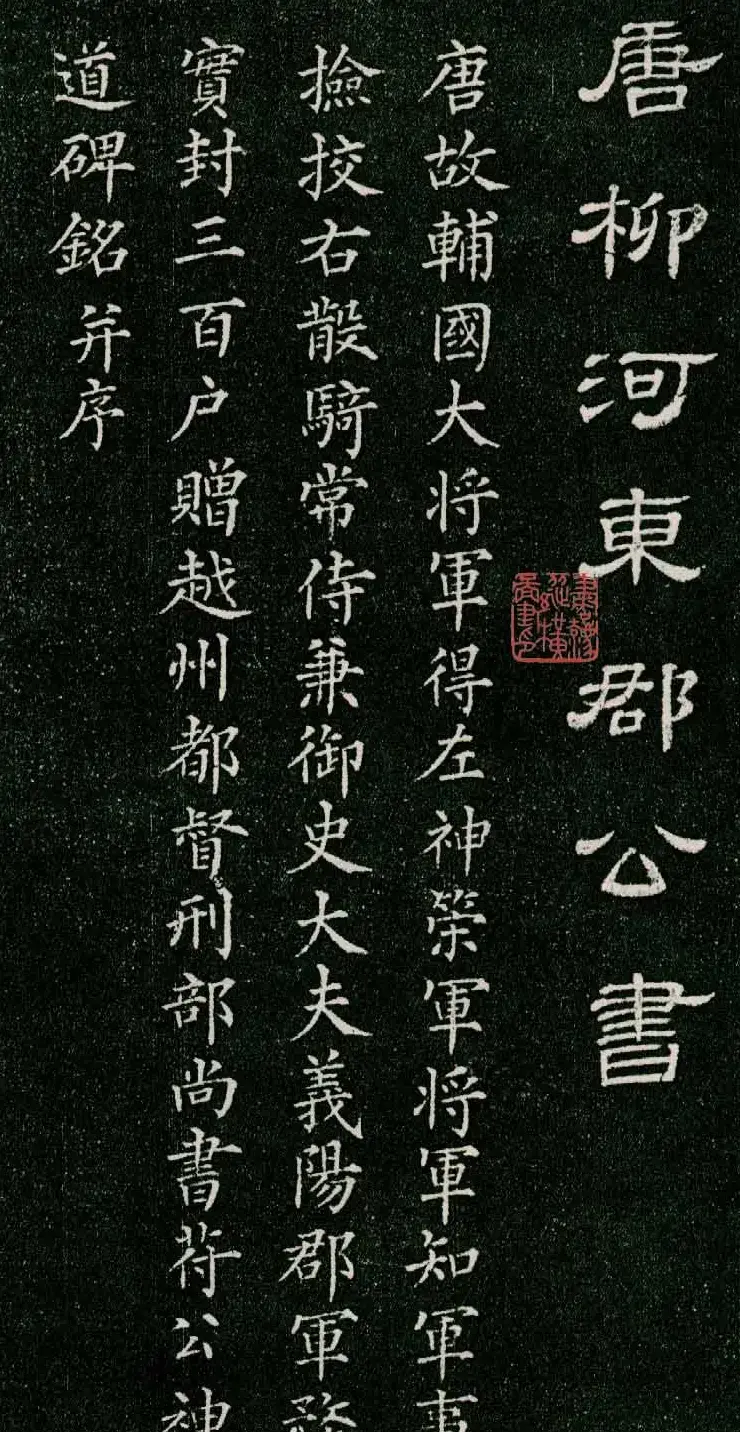 唐柳河東郡公書
唐故輔國大將軍得左神策軍將軍知軍事
撿挍右散騎常侍兼御史大夫義陽郡軍
實封三百户贈越州都督刑部尚書苻公神
道碑銘并序